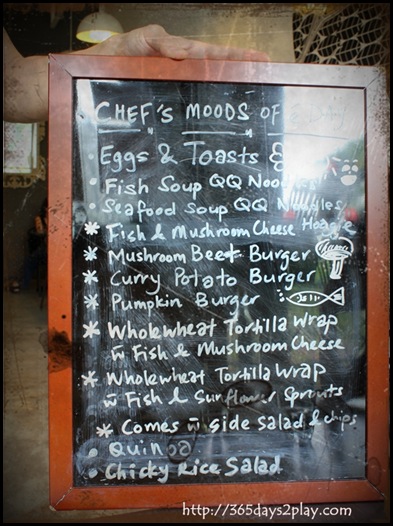 CHEF'S MOODS OF
• EGGS & TOASTS &
• FISH SOUP QQ NOODLES
• SEAFOOD SOUP QQ NOODLES
* FISH & MUSHROOM CHEESE HOAGIE
* MUSHROOM BEET BURGER
* CURRY POTATO BURGER
* PUMPKIN BURGER
* WHOLEWHEAT TORTILLA WRAP
w̄ FISH & MUSHROOM CHEESE
* WHOLEWHEAT TORTILLA WRAP
w̄ FISH & SUNFLOWER SPROUTS
* COMES w̄ SIDE SALAD & CHIPS
• QUINOA
• CHICKY RICE SALAD
http://365days2play.com